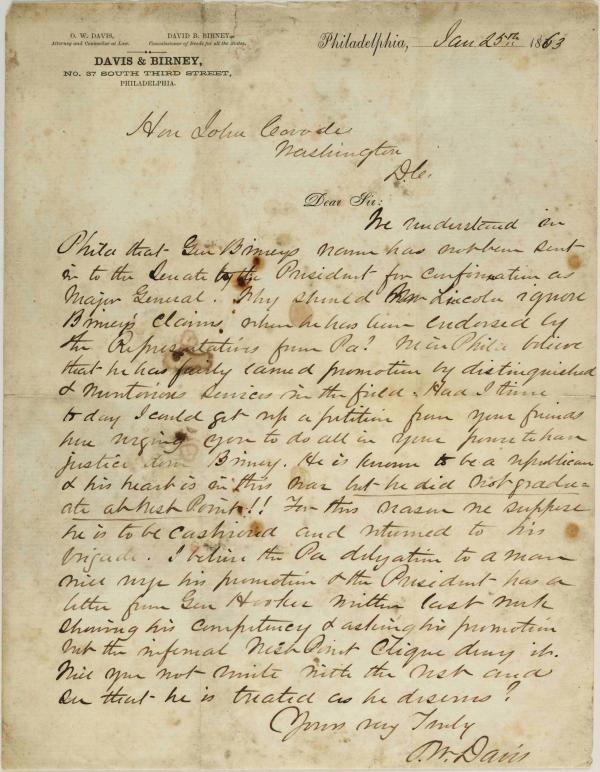 O. W. DAVIS,
Attorney and Counsellor at Law.
DAVID B. BIRNEY,
Commissioner of Deeds for all the States.
DAVIS & BIRNEY,
NO. 37 SOUTH THIRD STREET,
PHILADELPHIA.
Philadelphia, Jan 25th 1863
Hon John Covode
Washington
D.C.
Dear Sir:
We understand in
Phila that Gen Birneys name has not been sent
in to the Senate by the President for confirmation as
Major General. Why should Mr Lincoln ignore
Birney's claims when he has been endorsed by
the Representatives from Pa? We in Phila believe
that he has fairly earned promotion by distinguished
& meritorious services in the field. Had I time
to day I could get up a petition from your friends
here urging you to do all in your power to have
justice done Birney. He is known to be a republican
& his heart is in this war but he did not gradu-
ate at West Point!! For this reason we suppose
he is to be cashiered and returned to his
brigade. I believe the Pa delegation to a man
will urge his promotion & the President has a
letter from Gen Hooker written last week
showing his competency & asking his promotion
but the infernal West Point Clique deny it.
Will you not unite with the rest and
see that he is treated as he deserves?
Yours very Truly
O.W. Davis